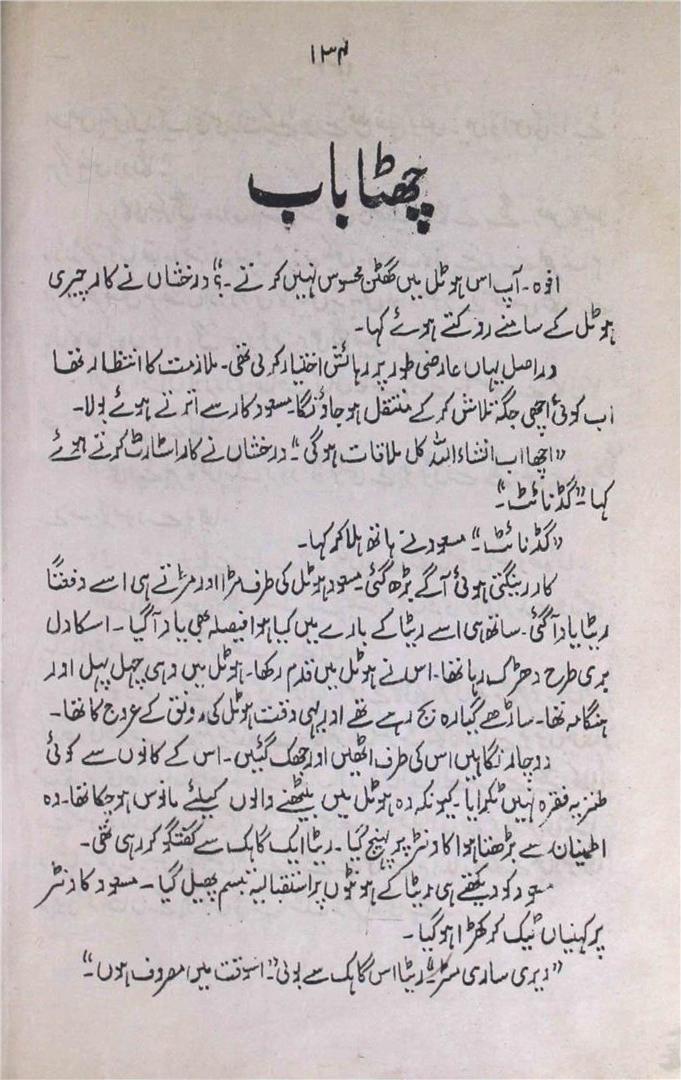 ۱۳۴
چھٹا باب
افوہ۔ آپ اس ہوٹل میں گھٹن محسوس نہیں کرتے۔؟“ درخشاں نے کار چیری
ہوٹل کے سامنے روکتے ہوئے کہا۔
دراصل یہاں عارضی طور پر رہائش اختیار کر لی تھی۔ ملازمت کا انتظار تھا
اب کوئی اچھی جگہ تلاش کر کے منتقل ہو جاؤنگا۔ مسعود کار سے اترتے ہوئے بولا۔
”اچھا اب انشاء اللہ کل ملاقات ہوگی“۔ درخشاں نے کار اسٹارٹ کرتے ہوئے
کہا ”گڈ نائٹ۔“
”گڈ نائٹ۔“ مسعود نے ہاتھ ہلا کر کہا۔
کار رینگتی ہوئی آگے بڑھ گئی۔ مسعود ہوٹل کی طرف مڑا اور مڑتے ہی اسے دفعتاً
ریٹا یاد آگئی۔ ساتھ ہی اسے ریٹا کے بارے میں کیا ہوا فیصلہ بھی یاد آگیا۔ اسکا دل
بری طرح دھڑک رہا تھا۔ اس نے ہوٹل میں قدم رکھا۔ ہوٹل میں وہی چہل پہل اور
ہنگامہ تھا۔ ساڑھے گیارہ بج رہے تھے اور یہی وقت ہوٹل کی رونق کے عروج کا تھا۔
دو چار نگاہیں اس کی طرف اٹھیں اور جھک گئیں۔ اس کے کانوں سے کوئی
طنزیہ فقرہ نہیں ٹکرایا۔ کیونکہ وہ ہوٹل میں بیٹھنے والوں کیلئے مانوس ہو چکا تھا۔ وہ
اطمینان سے بڑھتا ہوا کاونٹر پر پہنچ گیا۔ ریٹا ایک گاہک سے گفتگو کر رہی تھی۔
مسعود کو دیکھتے ہی ریٹا کے ہونٹوں پر استقبالیہ تبسم پھیل گیا۔ مسعود کاونٹر
پر کہنیاں ٹیک کر کھڑا ہوگیا۔
”ویری ساری مسٹر“ ریٹا اس گاہک سے بولی ”اسوقت میں مصروف ہوں۔“